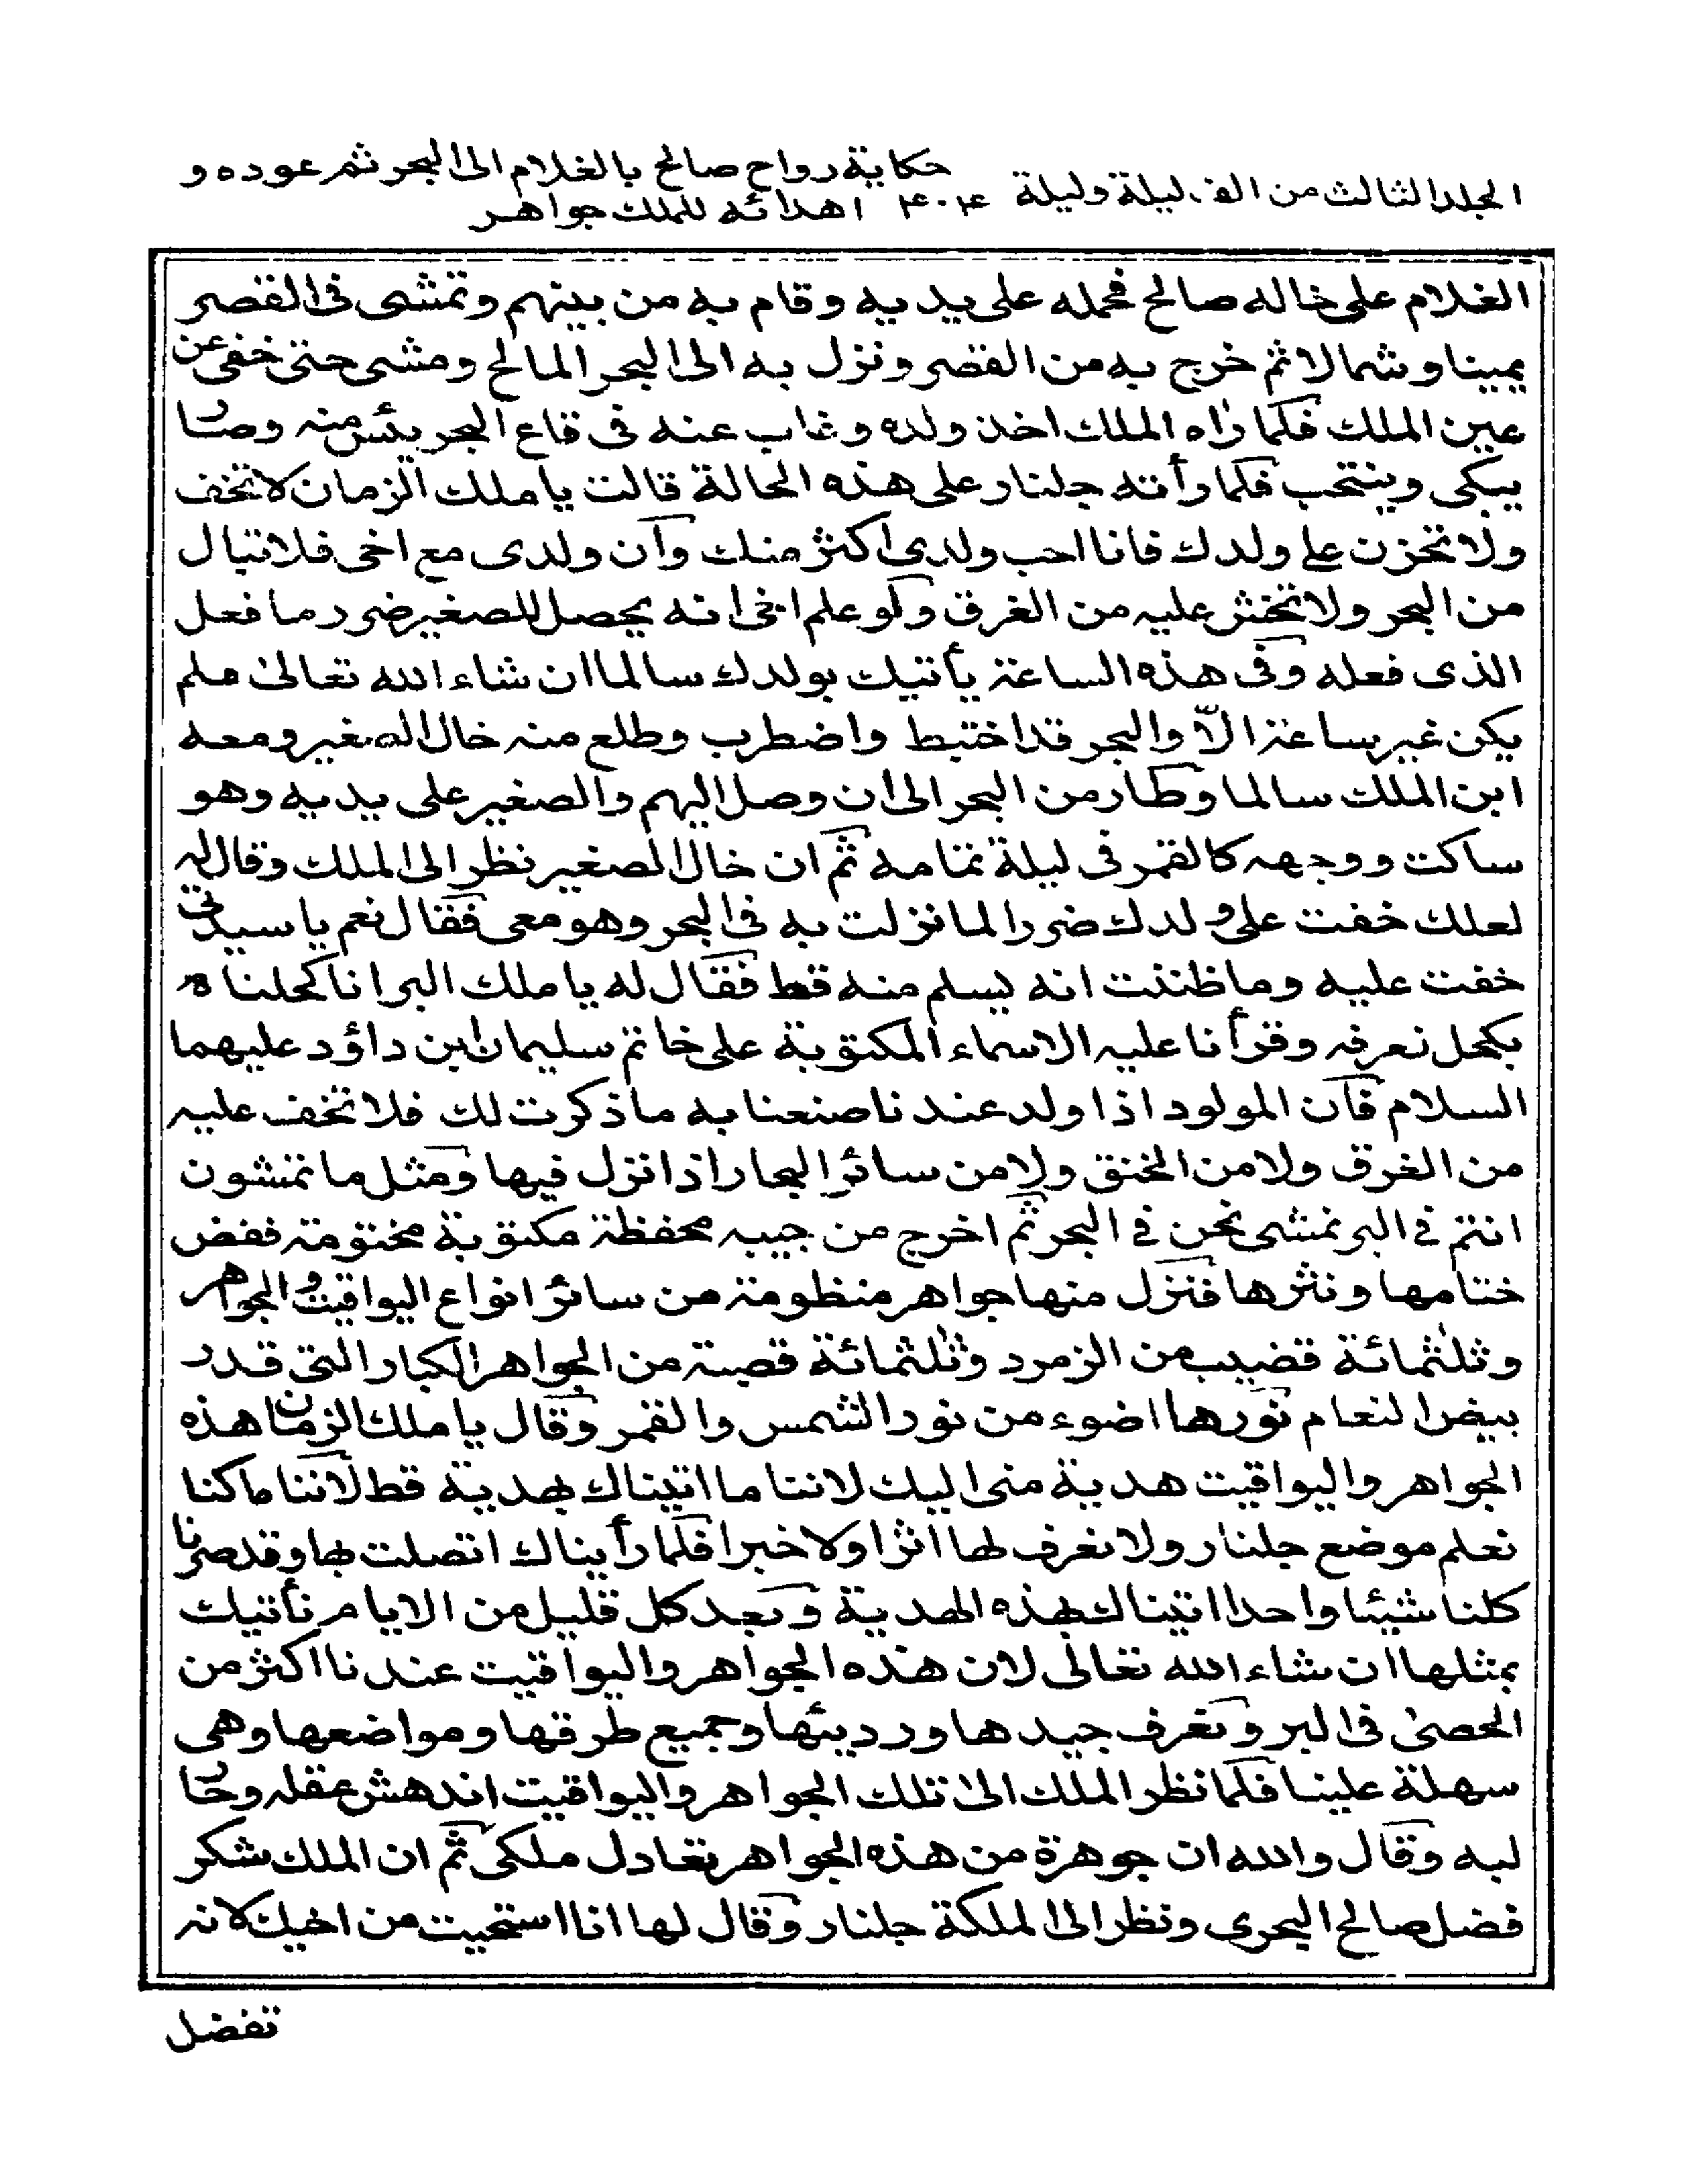 الجلد الثالث من الف ليلة وليلة
٤٠٤
حكاية رواح صالح بالغلام الى البحر ثم عوده و
اهدائه للملك جواهر
الغلام على خاله صالح فحمله على يديه وقام به من بينهم وتمشى فى القصر
يمينا وشمالا ثم خرج به من القصر ونزل به الى البحر المالح ومشى حتى خفى عن
عين الملك فلما رأه الملك اخذ ولده وغاب عنه فى قاع البحر يئس منه وصار
يبكى وينتحب فلما رأته جلنار على هذه الحالة قالت يا ملك الزمان لا تخف
ولا تحزن على ولدك فانا احب ولدى اكثر منك وان ولدى مع اخى فلا تبال
من البحر ولا تخش عليه من الغرق ولو علم اخى انه يحصل للصغير ضرر ما فعل
الذى فعله وفى هذه الساعة يأتيك بولدك سالما ان شاء الله تعالى فلم
يكن غير ساعة الّا والبحر قد اختبط واضطرب وطلع منه خال الصغير ومعه
ابن الملك سالما وطار من البحر الى ان وصل اليهم والصغير على يديه وهو
ساكت ووجهه كالقمر فى ليلة تمامه ثم ان خال الصغير نظر الى الملك وقال له
لعلك خفت على ولدك ضررا لما نزلت به فى البحر وهو معى فقال نعم يا سيدى
خفت عليه وما ظننت انه يسلم منه قط فقال له يا ملك البر انا كحلناه
بكحل نعرفه وقرأنا عليه الاسماء المكتوبة على خاتم سليمان ابن داؤد عليهما
السلام فان المولود اذا ولد عندنا صنعنا به ما ذكرت لك فلا تخف عليه
من الغرق ولا من الخنق ولا من سائر البحار اذا نزل فيها ومثل ما تمشون
انتم فى البر نمشى نحن فى البحر ثم اخرج من جيبه محفظة مكتوبة مختومة ففض
ختامها ونثرها فنزل منها جواهر منظومة من سائر انواع اليواقيت والجواهر
وثلثمائة قضيب من الزمرد وثلثمائة قصبة من الجواهر الكبار التى قدر
بيض النعام نورها اضوء من نور الشمس والقمر وقال يا ملك الزمان هذه
الجواهر واليواقيت هدية منى اليك لاننا ما اتيناك بهدية قط لاننا ما كنا
نعلم موضع جلنار ولا نعرف لها اثرا ولا خبرا فلما رأيناك اتصلت بها وقد صرنا
كلنا شيئا واحدا اتيناك بهذه الهدية وبعد كل قليل من الايام نأتيك
بمثلها ان شاء الله تعالى لان هذه الجواهر واليواقيت عندنا اكثر من
الحصى فى البر ونعرف جيدها ورديئها وجميع طرقها ومواضعها وهى
سهلة علينا فلما نظر الملك الى تلك الجواهر واليواقيت اندهش عقله وحار
لبه وقال والله ان جوهرة من هذه الجواهر تعادل ملكى ثم ان الملك شكر
فضل صالح البحرى ونظر الى الملكة جلنار وقال لها انا استحييت من اخيك لانه
تفضل